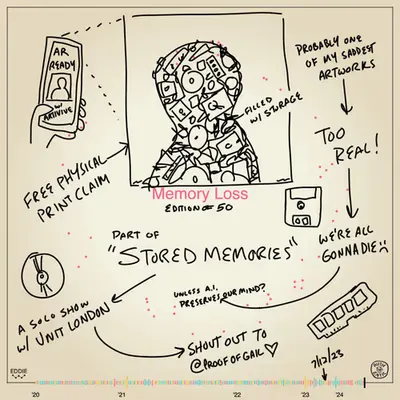 AR
READY
W/
ARTIVIVE
PROBABLY ONE
OF MY SADDEST
ARTWORKS
FILLED
W/ STORAGE
TOO
REAL!
FREE PHYSICAL
PRINT CLAIM
Memory Loss
EDITION OF 50
PART OF
"STORED MEMORIES"
WE'RE ALL
GONNA DIE :(
A SOLO SHOW
W/ UNIT LONDON
UNLESS A.I.
PRESERVES OUR MIND?
SHOUT OUT TO
@PROOFOFGAIL ♡
7/12/23
EDDIE
'20
'21
'22
'23
'24